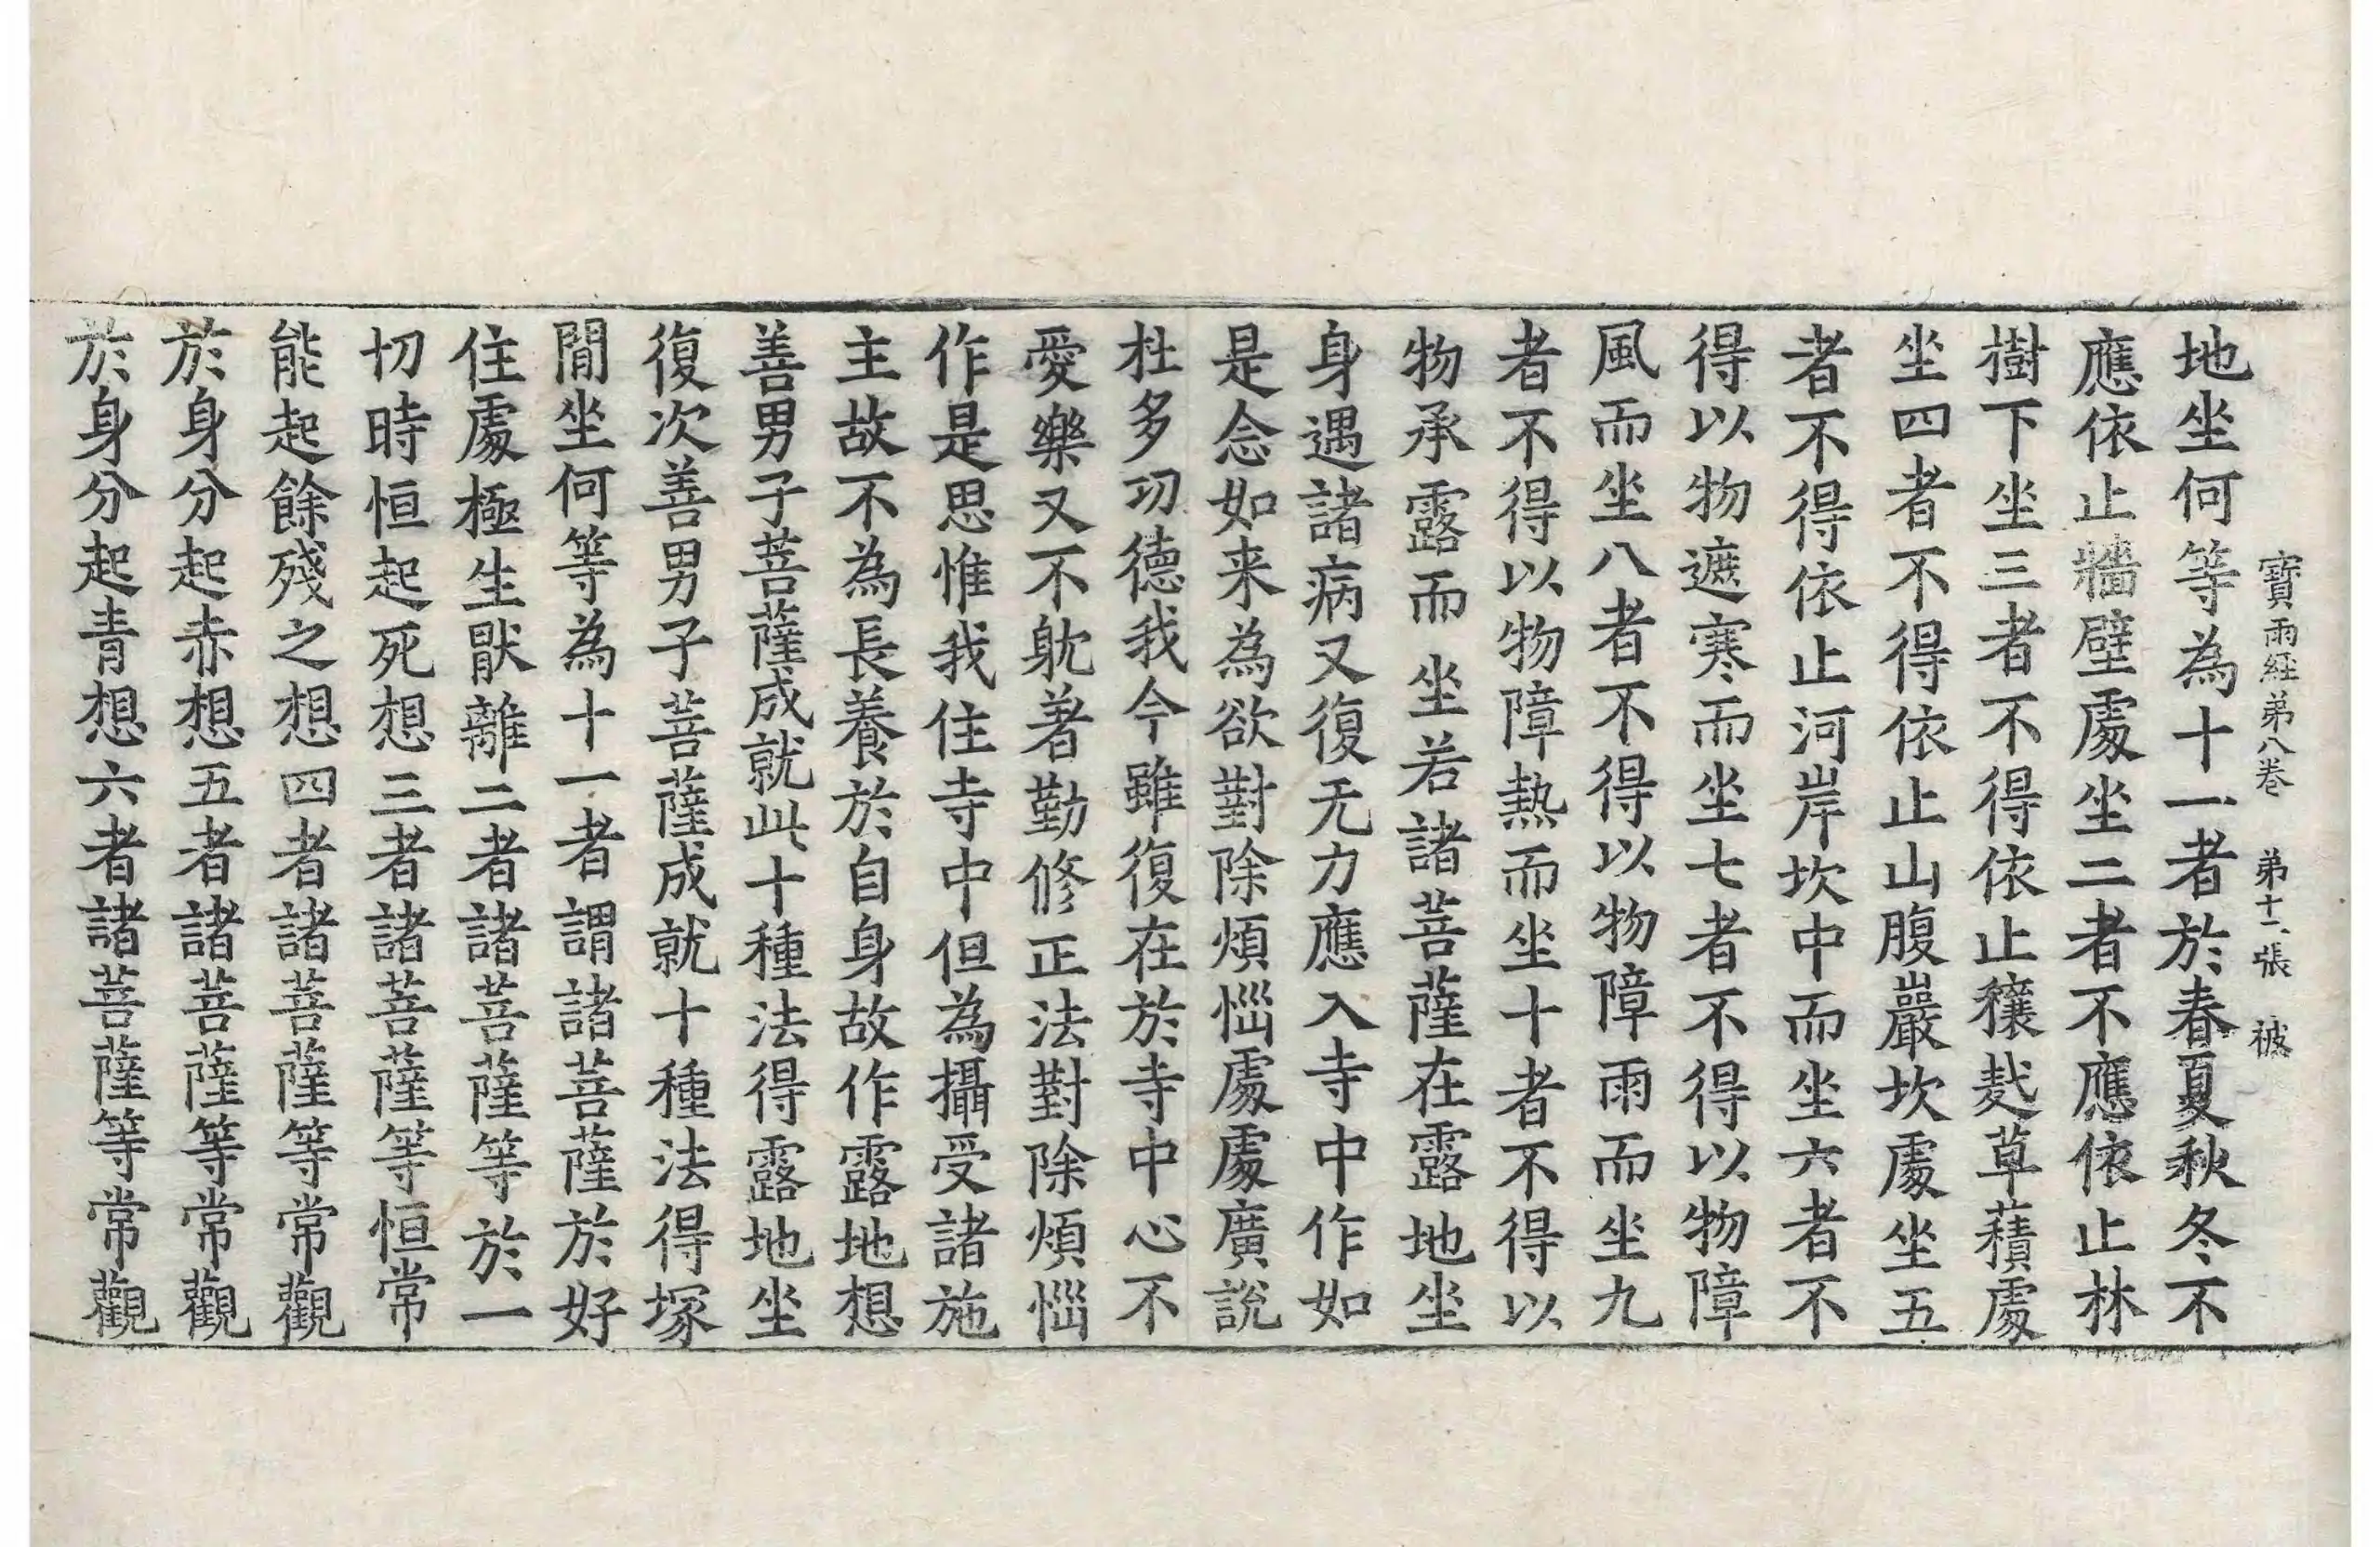 寶雨經弟八卷 弟十一張 被
地坐何等為十一者於春夏秋冬不
應依止牆壁處坐二者不應依止林
樹下坐三者不得依止穰𦯧草𧂐處
坐四者不得依止山腹巖坎處坐五
者不得依止河岸坎中而坐六者不
得以物遮寒而坐七者不得以物障
風而坐八者不得以物障雨而坐九
者不得以物障熱而坐十者不得以
物承露而坐若諸菩薩在露地坐
身遇諸病又復无力應入寺中作如
是念如来為欲對除煩惱處處廣說
杜多功德我今雖復在於寺中心不
愛樂又不躭著勤修正法對除煩惱
作是思惟我住寺中但為攝受諸施
主故不為長養於自身故作露地想
善男子菩薩成就此十種法得露地坐
復次善男子菩薩成就十種法得塚
間坐何等為十一者謂諸菩薩於好
住處極生猒離二者諸菩薩等於一
切時恒起死想三者諸菩薩等恒常
能起餘殘之想四者諸菩薩等常觀
於身分起赤想五者諸菩薩等常觀
於身分起青想六者諸菩薩等常觀